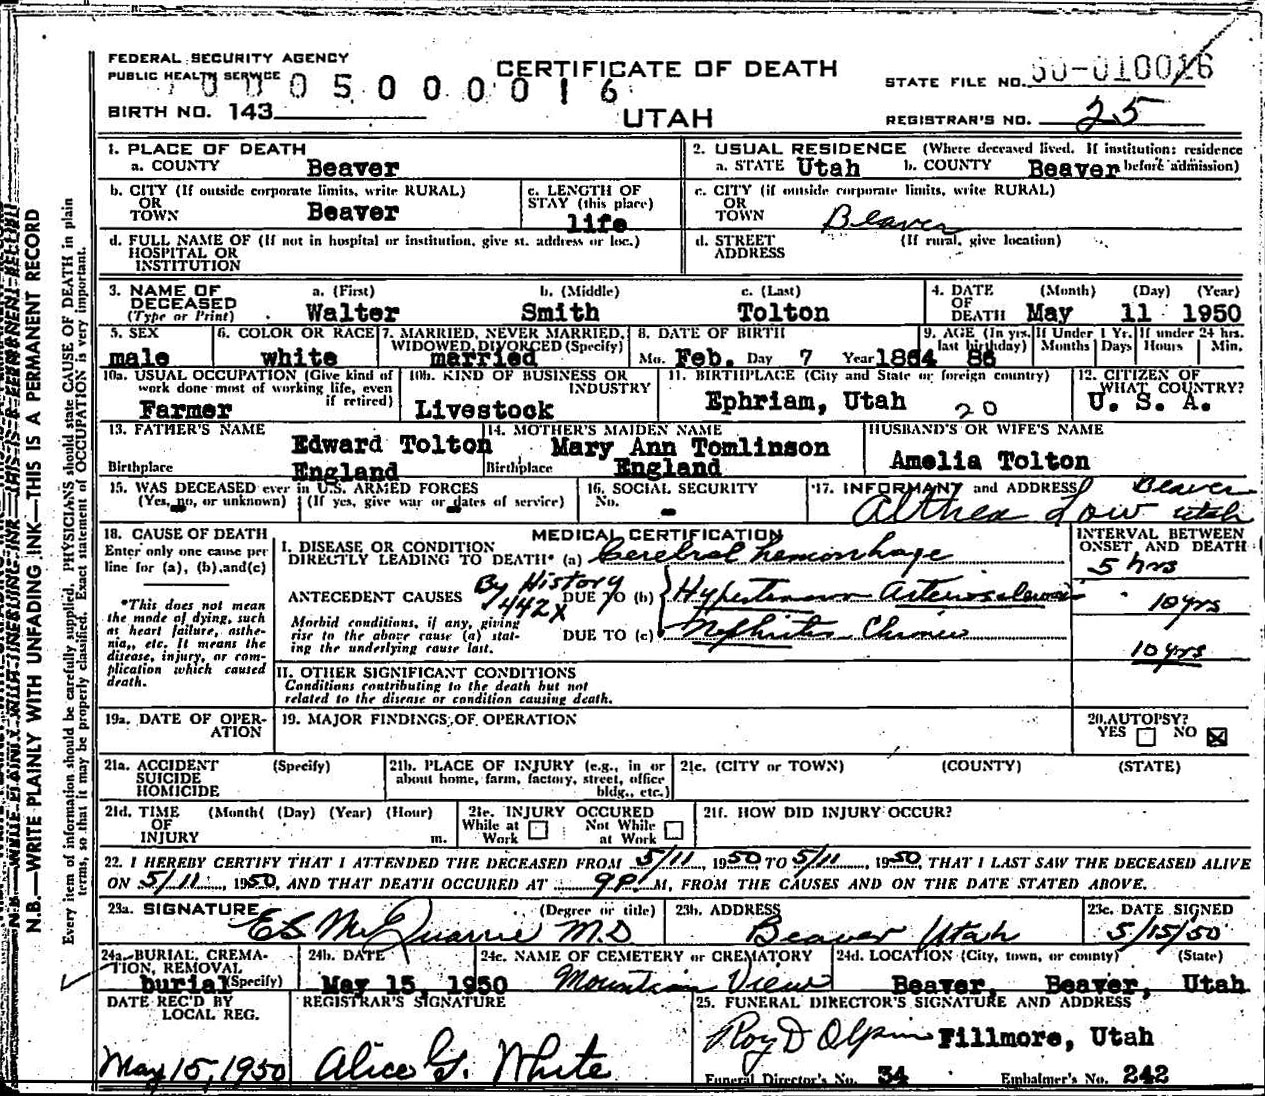 FEDERAL SECURITY AGENCY
PUBLIC HEALTH SERVICE
CERTIFICATE OF DEATH
UTAH
STATE FILE NO. 50-010016
0 0 5 0 0 0 0 1 6
BIRTH NO. 143
REGISTRAR'S NO. 25
1. PLACE OF DEATH
a. COUNTY Beaver
2. USUAL RESIDENCE (Where deceased lived. If institution: residence before admission)
a. STATE Utah b. COUNTY Beaver
b. CITY (If outside corporate limits, write RURAL)
OR
TOWN Beaver
c. LENGTH OF
STAY (this place)
life
c. CITY (if outside corporate limits, write RURAL)
OR
TOWN Beaver
d. FULL NAME OF (If not in hospital or institution, give st. address or loc.)
HOSPITAL OR
INSTITUTION
d. STREET (If rural, give location)
ADDRESS
3. NAME OF
DECEASED
(Type or Print)
a. (First) b. (Middle) c. (Last)
Walter Smith Tolton
4. DATE OF DEATH (Month) (Day) (Year)
May 11 1950
5. SEX
male
6. COLOR OR RACE
white
7. MARRIED, NEVER MARRIED,
WIDOWED, DIVORCED (Specify)
married
8. DATE OF BIRTH
Mo. Feb. Day 7 Year 1864
9. AGE (In yrs. last birthday)
86
If Under 1 Yr.
Months Days
If under 24 hrs.
Hours Min.
10a. USUAL OCCUPATION (Give kind of
work done most of working life, even
if retired)
Farmer
10b. KIND OF BUSINESS OR
INDUSTRY
Livestock
11. BIRTHPLACE (City and State or foreign country)
Ephriam, Utah 20
12. CITIZEN OF
WHAT COUNTRY?
U. S. A.
13. FATHER'S NAME
Edward Tolton
Birthplace England
14. MOTHER'S MAIDEN NAME
Mary Ann Tomlinson
Birthplace England
HUSBAND'S OR WIFE'S NAME
Amelia Tolton
15. WAS DECEASED ever in U.S. ARMED FORCES
(Yes, no, or unknown) (If yes, give war or dates of service)
16. SOCIAL SECURITY
No. -
17. INFORMANT and ADDRESS Beaver
Althea Low Utah
18. CAUSE OF DEATH
Enter only one cause per
line for (a), (b), and (c)
*This does not mean
the mode of dying, such
as heart failure, asthe-
nia, etc. It means the
disease, injury, or com-
plication which caused
death.
MEDICAL CERTIFICATION
INTERVAL BETWEEN
ONSET AND DEATH
I. DISEASE OR CONDITION
DIRECTLY LEADING TO DEATH* (a) Cerebral hemorrhage 5 hrs
By History
ANTECEDENT CAUSES 442X DUE TO (b) Hypertension Arteriosclerosis 10 yrs
Morbid conditions, if any, giving
rise to the above cause (a) stat-
ing the underlying cause last.
DUE TO (c) Nephritis Chronic 10 yrs
II. OTHER SIGNIFICANT CONDITIONS
Conditions contributing to the death but not
related to the disease or condition causing death.
19a. DATE OF OPER-
ATION
19. MAJOR FINDINGS OF OPERATION
20. AUTOPSY?
YES NO
21a. ACCIDENT (Specify)
SUICIDE
HOMICIDE
21b. PLACE OF INJURY (e.g., in or
about home, farm, factory, street, office
bldg., etc.)
21c. (CITY or TOWN) (COUNTY) (STATE)
21d. TIME (Month) (Day) (Year) (Hour)
OF
INJURY m.
21e. INJURY OCCURED
While at Work Not While at Work
21f. HOW DID INJURY OCCUR?
22. I HEREBY CERTIFY THAT I ATTENDED THE DECEASED FROM 5/11, 1950 TO 5/11, 1950, THAT I LAST SAW THE DECEASED ALIVE
ON 5/11, 1950, AND THAT DEATH OCCURED AT 9 P. M, FROM THE CAUSES AND ON THE DATE STATED ABOVE.
23a. SIGNATURE (Degree or title)
ES McQuarrie M.D
23b. ADDRESS
Beaver Utah
23c. DATE SIGNED
5/15/50
24a. BURIAL, CREMA-
TION, REMOVAL
burial (Specify)
24b. DATE
May 15, 1950
24c. NAME OF CEMETERY or CREMATORY
Mountain View
24d. LOCATION (City, town, or county) (State)
Beaver, Beaver, Utah
DATE REC'D BY
LOCAL REG.
May 15, 1950
REGISTRAR'S SIGNATURE
Alice G. White
25. FUNERAL DIRECTOR'S SIGNATURE AND ADDRESS
Roy D Olpin Fillmore, Utah
Funeral Director's No. 34 Embalmer's No. 242
N.B.—WRITE PLAINLY WITH UNFADING INK—THIS IS A PERMANENT RECORD
Every item of information should be carefully supplied. PHYSICIANS should state CAUSE OF DEATH in plain
terms, so that it may be properly classified. Exact statement of OCCUPATION is very important.